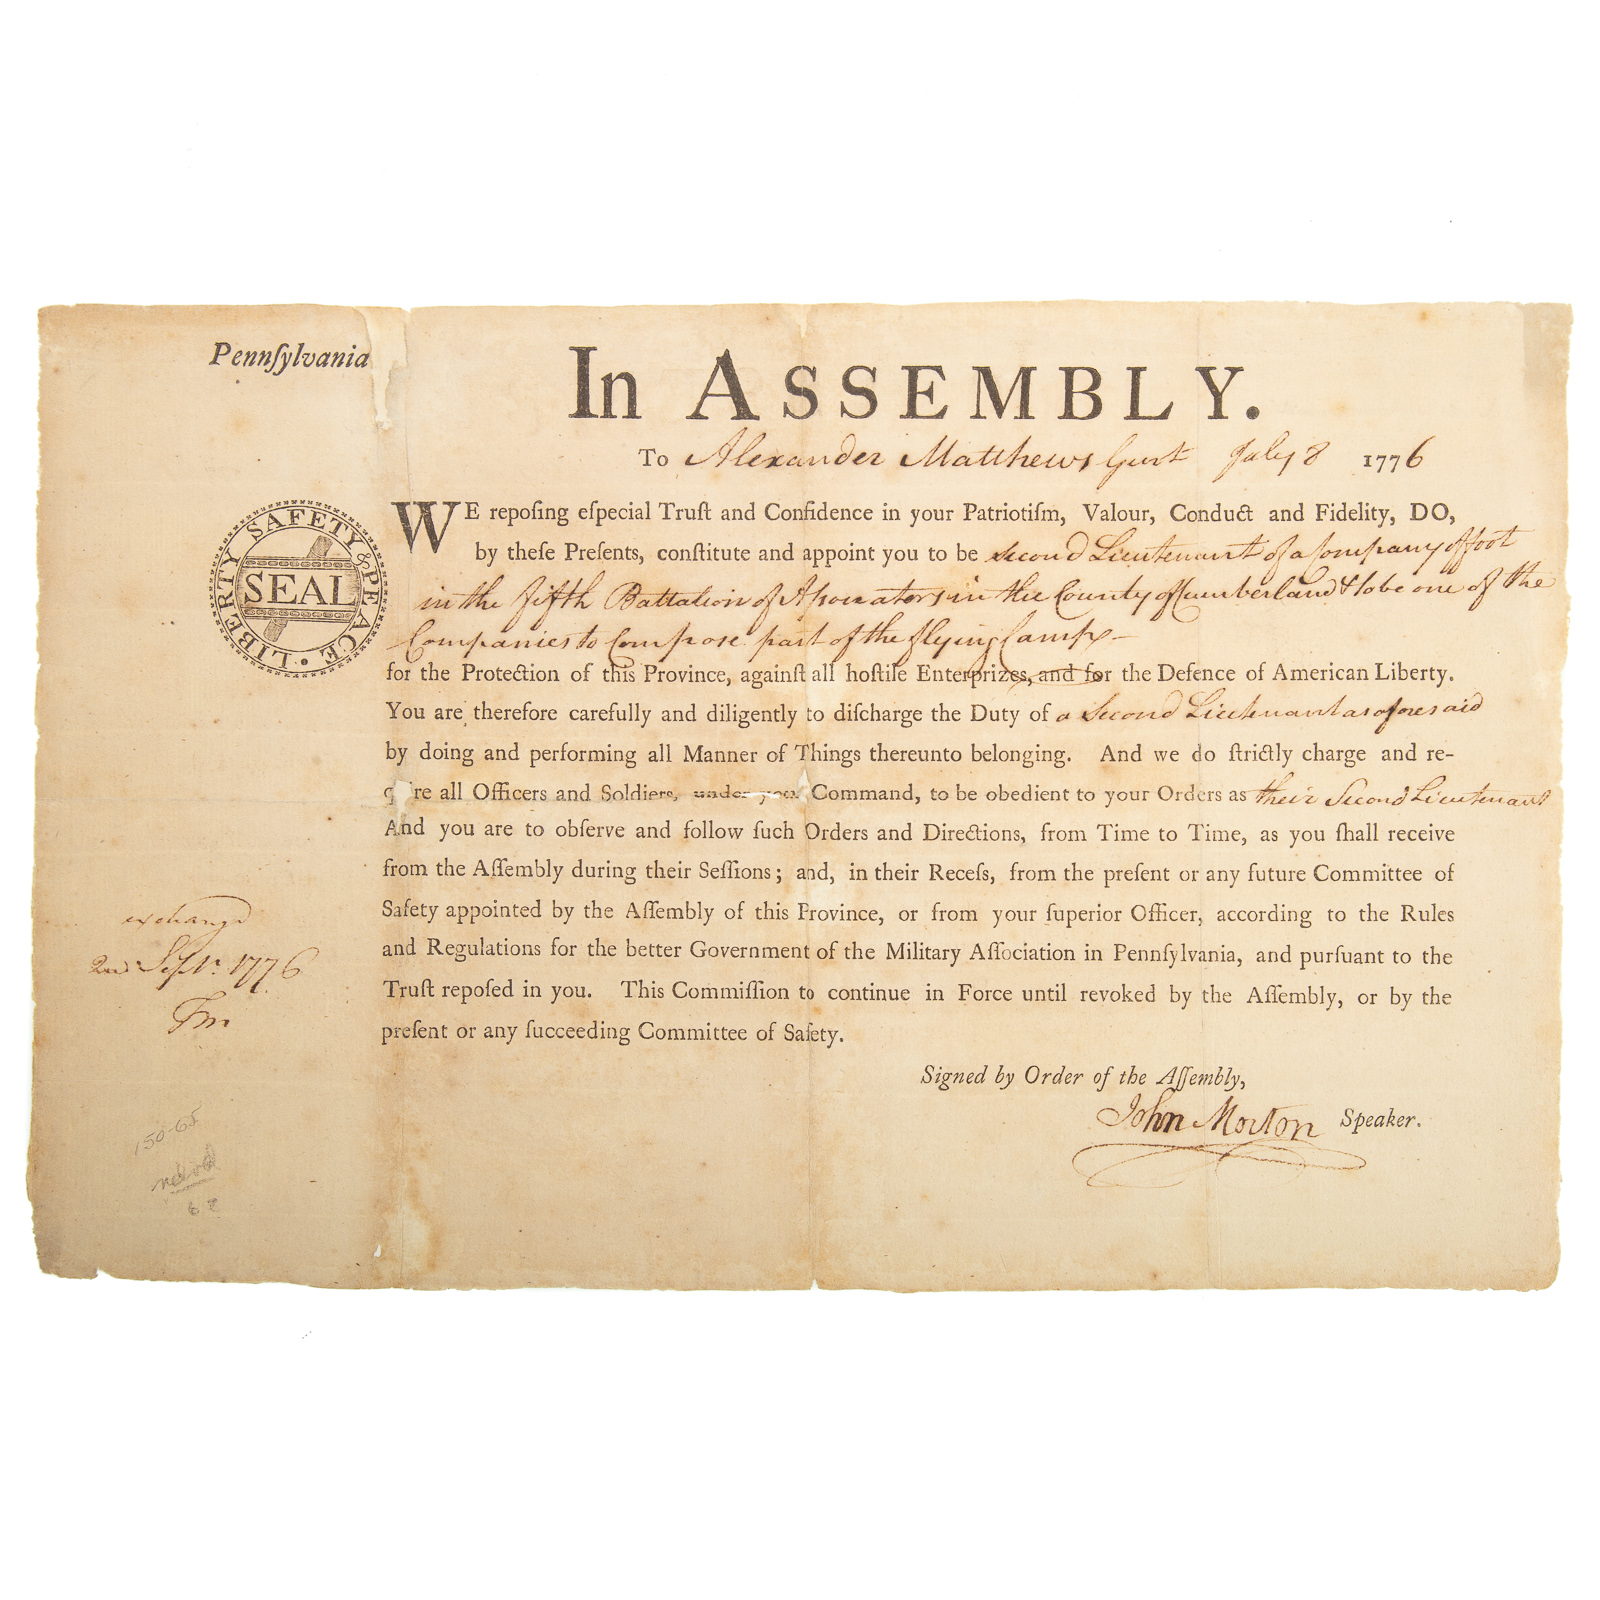 Pennſylvania
In ASSEMBLY.
To Alexander Matthews Gent July 8 1776
LIBERTY SAFETY & PEACE
SEAL
WE repoſing eſpecial Truſt and Confidence in your Patriotiſm, Valour, Conduct and Fidelity, DO,
by theſe Preſents, conſtitute and appoint you to be second Lieutenant of a Company of foot
in the fifth Battalion of Aſsociators in the County of Cumberland & to be one of the
Companies to Compose part of the flying Camp
for the Protection of this Province, againſt all hoſtile Enterprizes, and for the Defence of American Liberty.
You are therefore carefully and diligently to diſcharge the Duty of a Second Lieutenant as aforesaid
by doing and performing all Manner of Things thereunto belonging. And we do ſtrictly charge and re-
quire all Officers and Soldiers, under your Command, to be obedient to your Orders as their Second Lieutenant
And you are to obſerve and follow ſuch Orders and Directions, from Time to Time, as you ſhall receive
from the Aſſembly during their Seſſions; and, in their Receſs, from the preſent or any future Committee of
Safety appointed by the Aſſembly of this Province, or from your ſuperior Officer, according to the Rules
and Regulations for the better Government of the Military Aſſociation in Pennſylvania, and purſuant to the
Truſt repoſed in you. This Commiſſion to continue in Force until revoked by the Aſſembly, or by the
preſent or any ſucceeding Committee of Safety.
Signed by Order of the Aſſembly,
John Morton Speaker.
exchang'd
2nd Sept. 1776
150-65